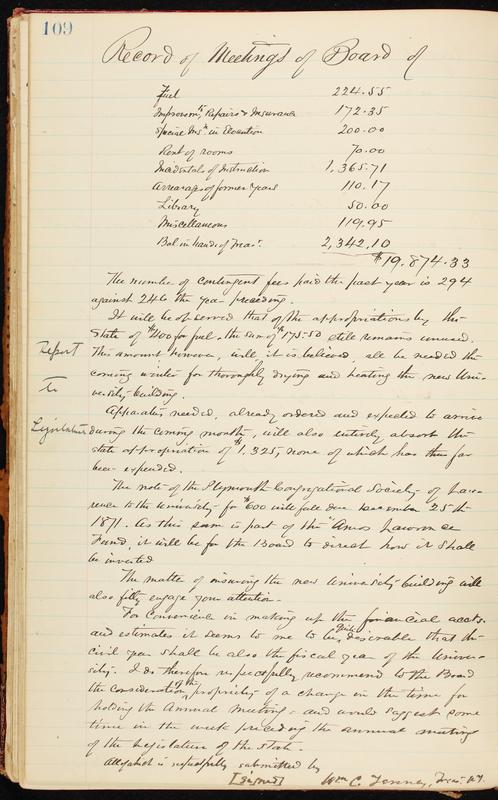 109
Record of Meetings of Board of
Fuel 224.55
Improvmts, Repairs & Insurance 172.35
Special Inst. in Elocution 200.00
Rent of rooms 70.00
Incidentals of Instruction 1,365.71
Arrearages of former years 110.17
Library 50.00
Miscellaneous 119.95
Bal in hands of Treasr. 2,342.10
$19,874.33
The number of contingent fees paid the past year is 294
against 246 the year preceding.
It will be observed that of the appropriations by the
State of $400 for fuel, the sum of $175.50 still remains unused.
This amount however, will, it is believed, all be needed the
coming winter for thoroughly drying and heating the new Uni-
versity building.
Report
to
Legislature
Apparatus needed, already ordered and expected to arrive
during the coming month, will also entirely absorb the
state appropriation of $1,325, none of which has thus far
been expended.
The note of the Plymouth Congregational Society of Law-
rence to the University for $600 will fall due December 25th
1871. As this sum is part of the "Amos Lawrence
Fund, it will be for the Board to direct how it shall
be invested
The matter of insuring the new University building will
also fitly engage your attention.
For convenience in making up the financial accts.
and estimates it seems to me to be desirable that the
civil year shall be also the fiscal year of the Univer-
sity. I do therefore respectfully recommend to the Board
the consideration of the propriety of a change in the time for
holding the Annual Meeting - and would suggest some
time in the week preceding the annual meeting
of the Legislature of the State.
All which is respectfully submitted by
[Signed] Wm C. Tenney, Treas.